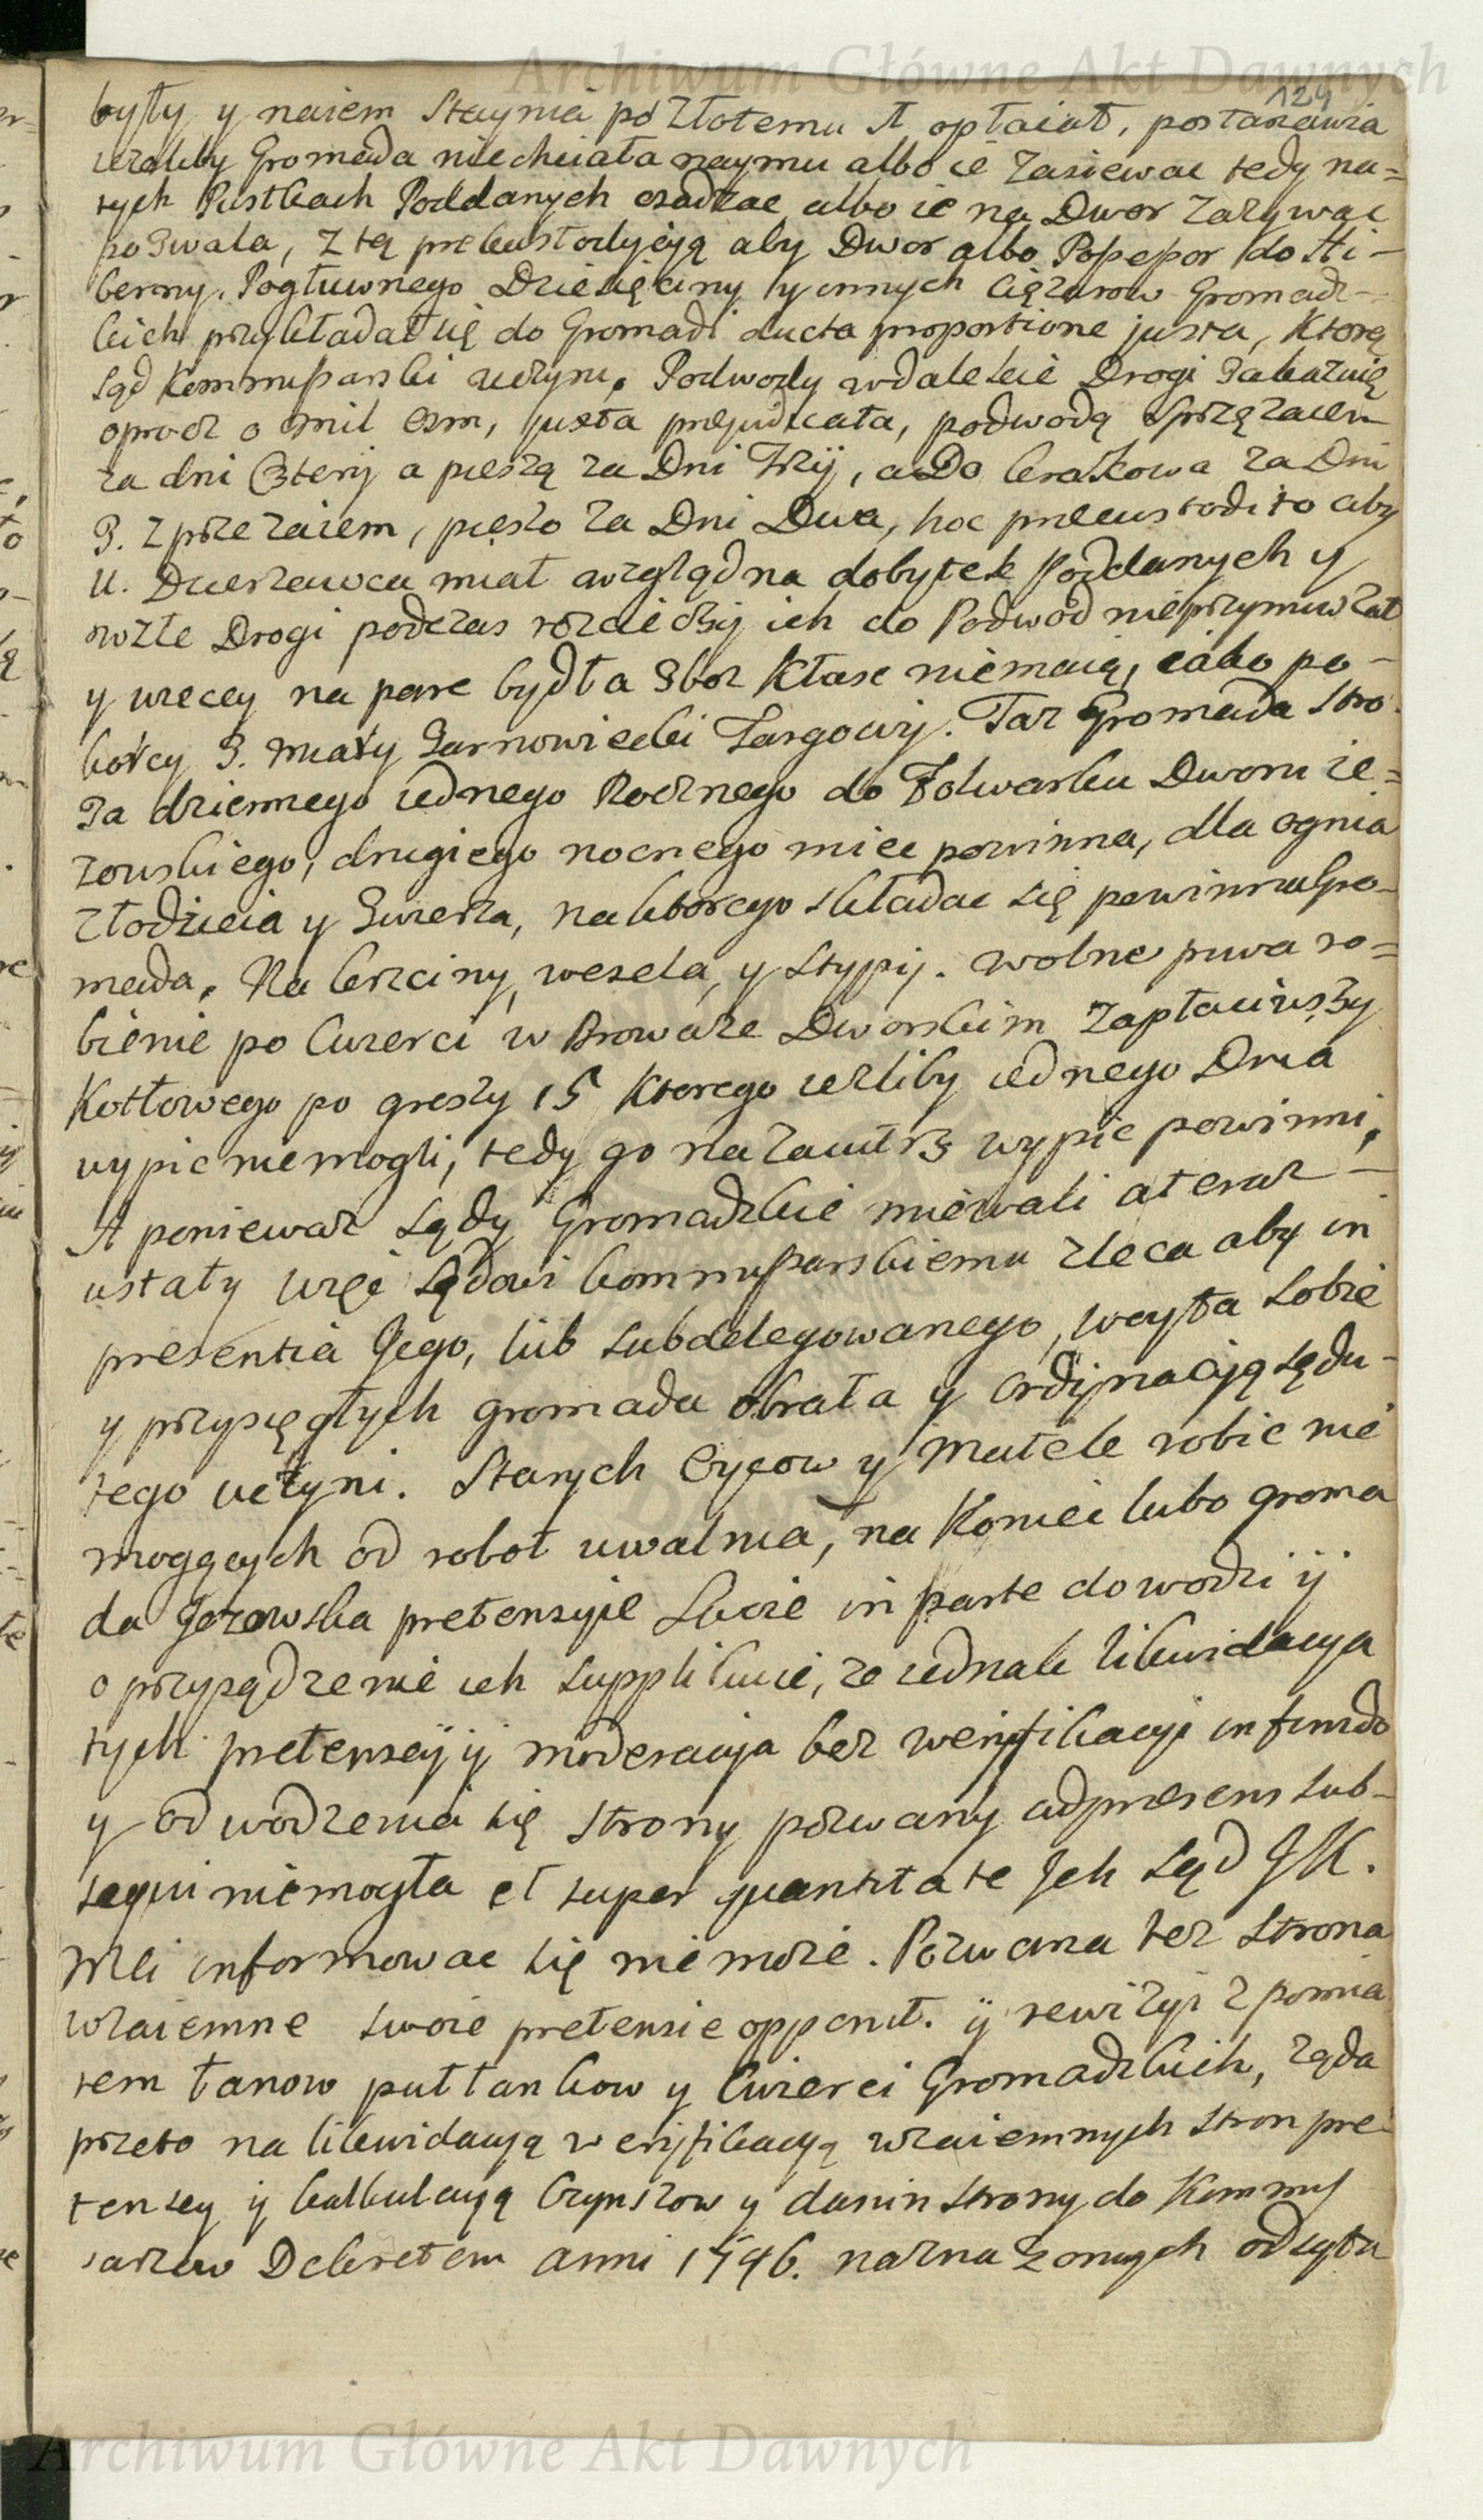 Archiwum Główne Akt Dawnych
124
były y naiem Staynia po Złotemu A opłaiał, postanawia
iezeliby Gromada niechciała naymu albo ie Zasiewac tedy na=
tych Pustkach Poddanych osadzac albo ie na Dwor Zazywac
pozwala, z tą prekustodycyą aby Dwor albo Possessor do Hi-
berny, Pogłuwnego Dziesięciny y innych Ciężarow Gromadz-
kich przykładał się do Gromadi ducta proportione justa, Ktorą
Sąd Kommissarski uczyni. Podwody wdalekie Drogi Zakazuię
oprocz o mil osm, juxta prejudicata, podwodą Sprzęzaiem
za dni Cztery a pieszą za Dni Trzÿ, a Do Krakowa za Dni
3. z przezaiem, pieszo za Dni Dwa, hoc precustodito aby
U. Dzierzawca miał wzgląd na dobytek Poddanych y
w złe Drogi podczas rozcieczy ich do Podwod nieprzymuszał
y wiecey na pare bydła Zboz Kłasc niemaią, iako po-
korcy 3. miary Tarnowiecki Targowy. Taz Gromada Stro-
za dziennego iednego Rocznego do Folwarku Dworu ie=
zowskiego, drugiego nocnego miec powinna, dla ognia
złodzieia y Zwierza, na ktorego składac się powinna Gro-
mada. Na krzciny, wesela, y Stypÿ. wolne piwa ro=
bienie po Cwierci w Browarze Dworskim Zapłaciwszy
Kotłowego po groszy 15 Ktorego iezliby iednego Dnia
wypic niemogli, tedy go na zaiutrz wypic powinni,
A poniewaz Sądy Gromadzkie miewali a teraz —
ustały więc Sądowi kommissarskiemu zleca aby in
presentia Jego, lub subdelegowanego, woyta sobie
y przysięgłych gromada obrała y ordÿnacyją sądu-
tego uczyni. Starych Oycow y Matek robic nie
mogących od robot uwalnia, na Koniec lubo groma
da Jezowska pretensyie Swoie in parte dowodzi ÿ
o przysądzenie ich supplikuie, ze iednak likwidacya
tych pretensyÿ ÿ moderacyja bez weryfikacyi in fundo
y odwodzenia się strony pozwany ad presens sub-
sequi niemogła et super quantitate Jch Sąd JK.
Mci informowac się nie moze. Pozwana tez strona
wzaiemne swoie pretensie opponit. ÿ rewizyi z pomia
rem łanow pułłankow y Cwierci Gromadzkich, ząda
przeto na likwidacyą weryfikacyą wzaiemnych stron pre
tensey ÿ kalkulacyą Czynszow y danin strony do Kommis
sarzow Dekretem anni 1746. naznaczonych odsyła
Archiwum Główne Akt Dawnych